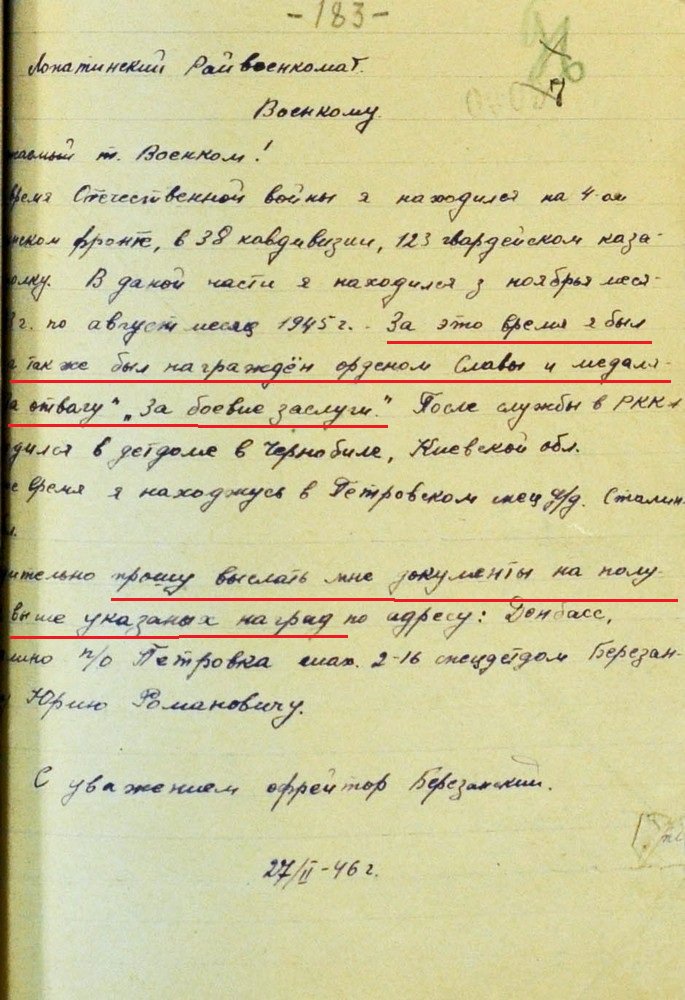 -183-
Лопатинский Райвоенкомат.
Военкому.
т. Военком!
время Отечественной войны я находился на 4-ом
нском фронте, в 38 кавдивизии, 123 гвардейском каза-
олку. В даной части я находился з ноябрья меся-
г. по август месяц 1945 г. За это время я был
также был награждён орденом Славы и медаля-
а отвагу" „За боевие заслуги." После службы в РККА
дился в детдоме в Чернобиле, Киевской обл.
время я находжусь в Петровском спец д/д. Сталин-
л.
дительно прошу выслать мне документы на полу-
выше указаных наград по адресу: Донбасс,
лино п/о Петровка шах. 2-16 спецдетдом Березан-
у Юрию Романовичу.
С уважением ефрейтор Березанский.
27/II-46 г.